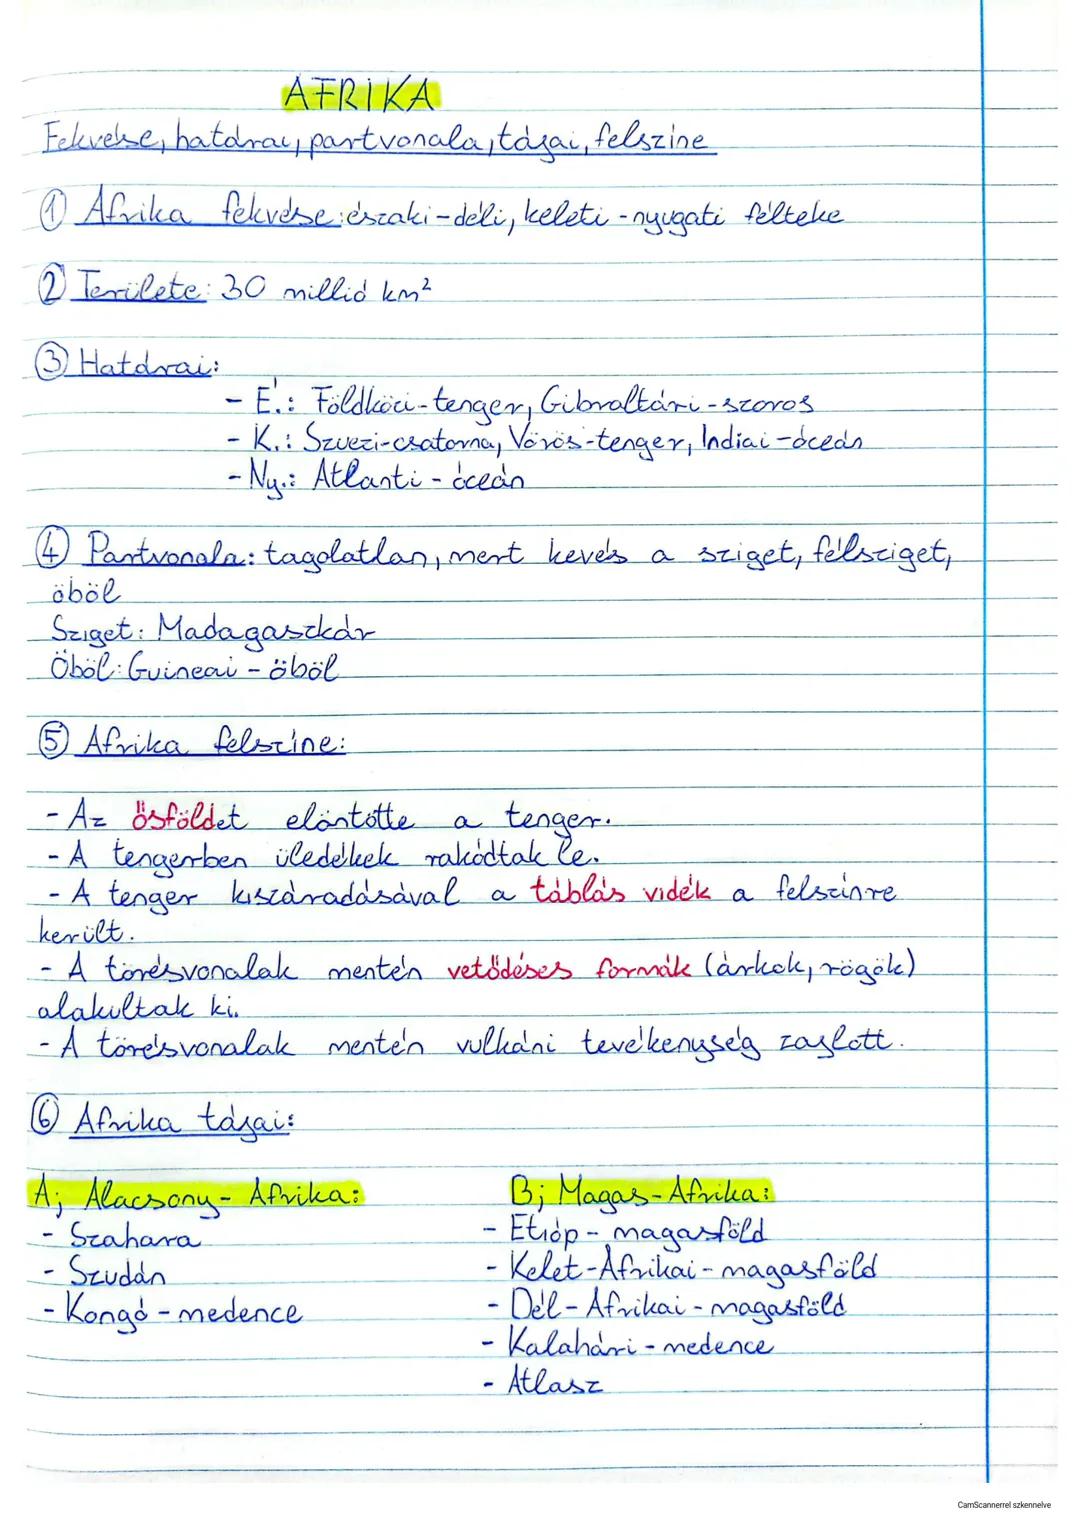 AFRIKA
Fekvése, határai, partvonala, tájai, felszíne
① Afrika fekvése: északi-déli, keleti-nyugati félteke
② Területe: 30 millió km²
③ Határai:
- É.: Földközi-tenger, Gibraltári-szoros
- K.: Szuezi-csatorna, Vörös-tenger, Indiai-óceán
- Ny.: Atlanti-óceán
④ Partvonala: tagolatlan, mert kevés a sziget, félsziget,
öböl
Sziget: Madagaszkár
Öböl: Guineai-öböl
⑤ Afrika felszíne:
- Az ősföldet elöntötte a tenger.
- A tengerben üledékek rakódtak le.
- A tenger kiszáradásával a táblás vidék a felszínre
került.
- A törésvonalak mentén vetődéses formák (árkok, rögök)
alakultak ki.
- A törésvonalak mentén vulkáni tevékenység zajlott.
⑥ Afrika tájai:
A; Alacsony-Afrika:
- Szahara
- Szudán
- Kongó-medence
B; Magas-Afrika:
- Etióp-magasföld
- Kelet-Afrikai-magasföld
- Dél-Afrikai-magasföld
- Kalahári-medence
- Atlasz
CamScannerrel szkennelve